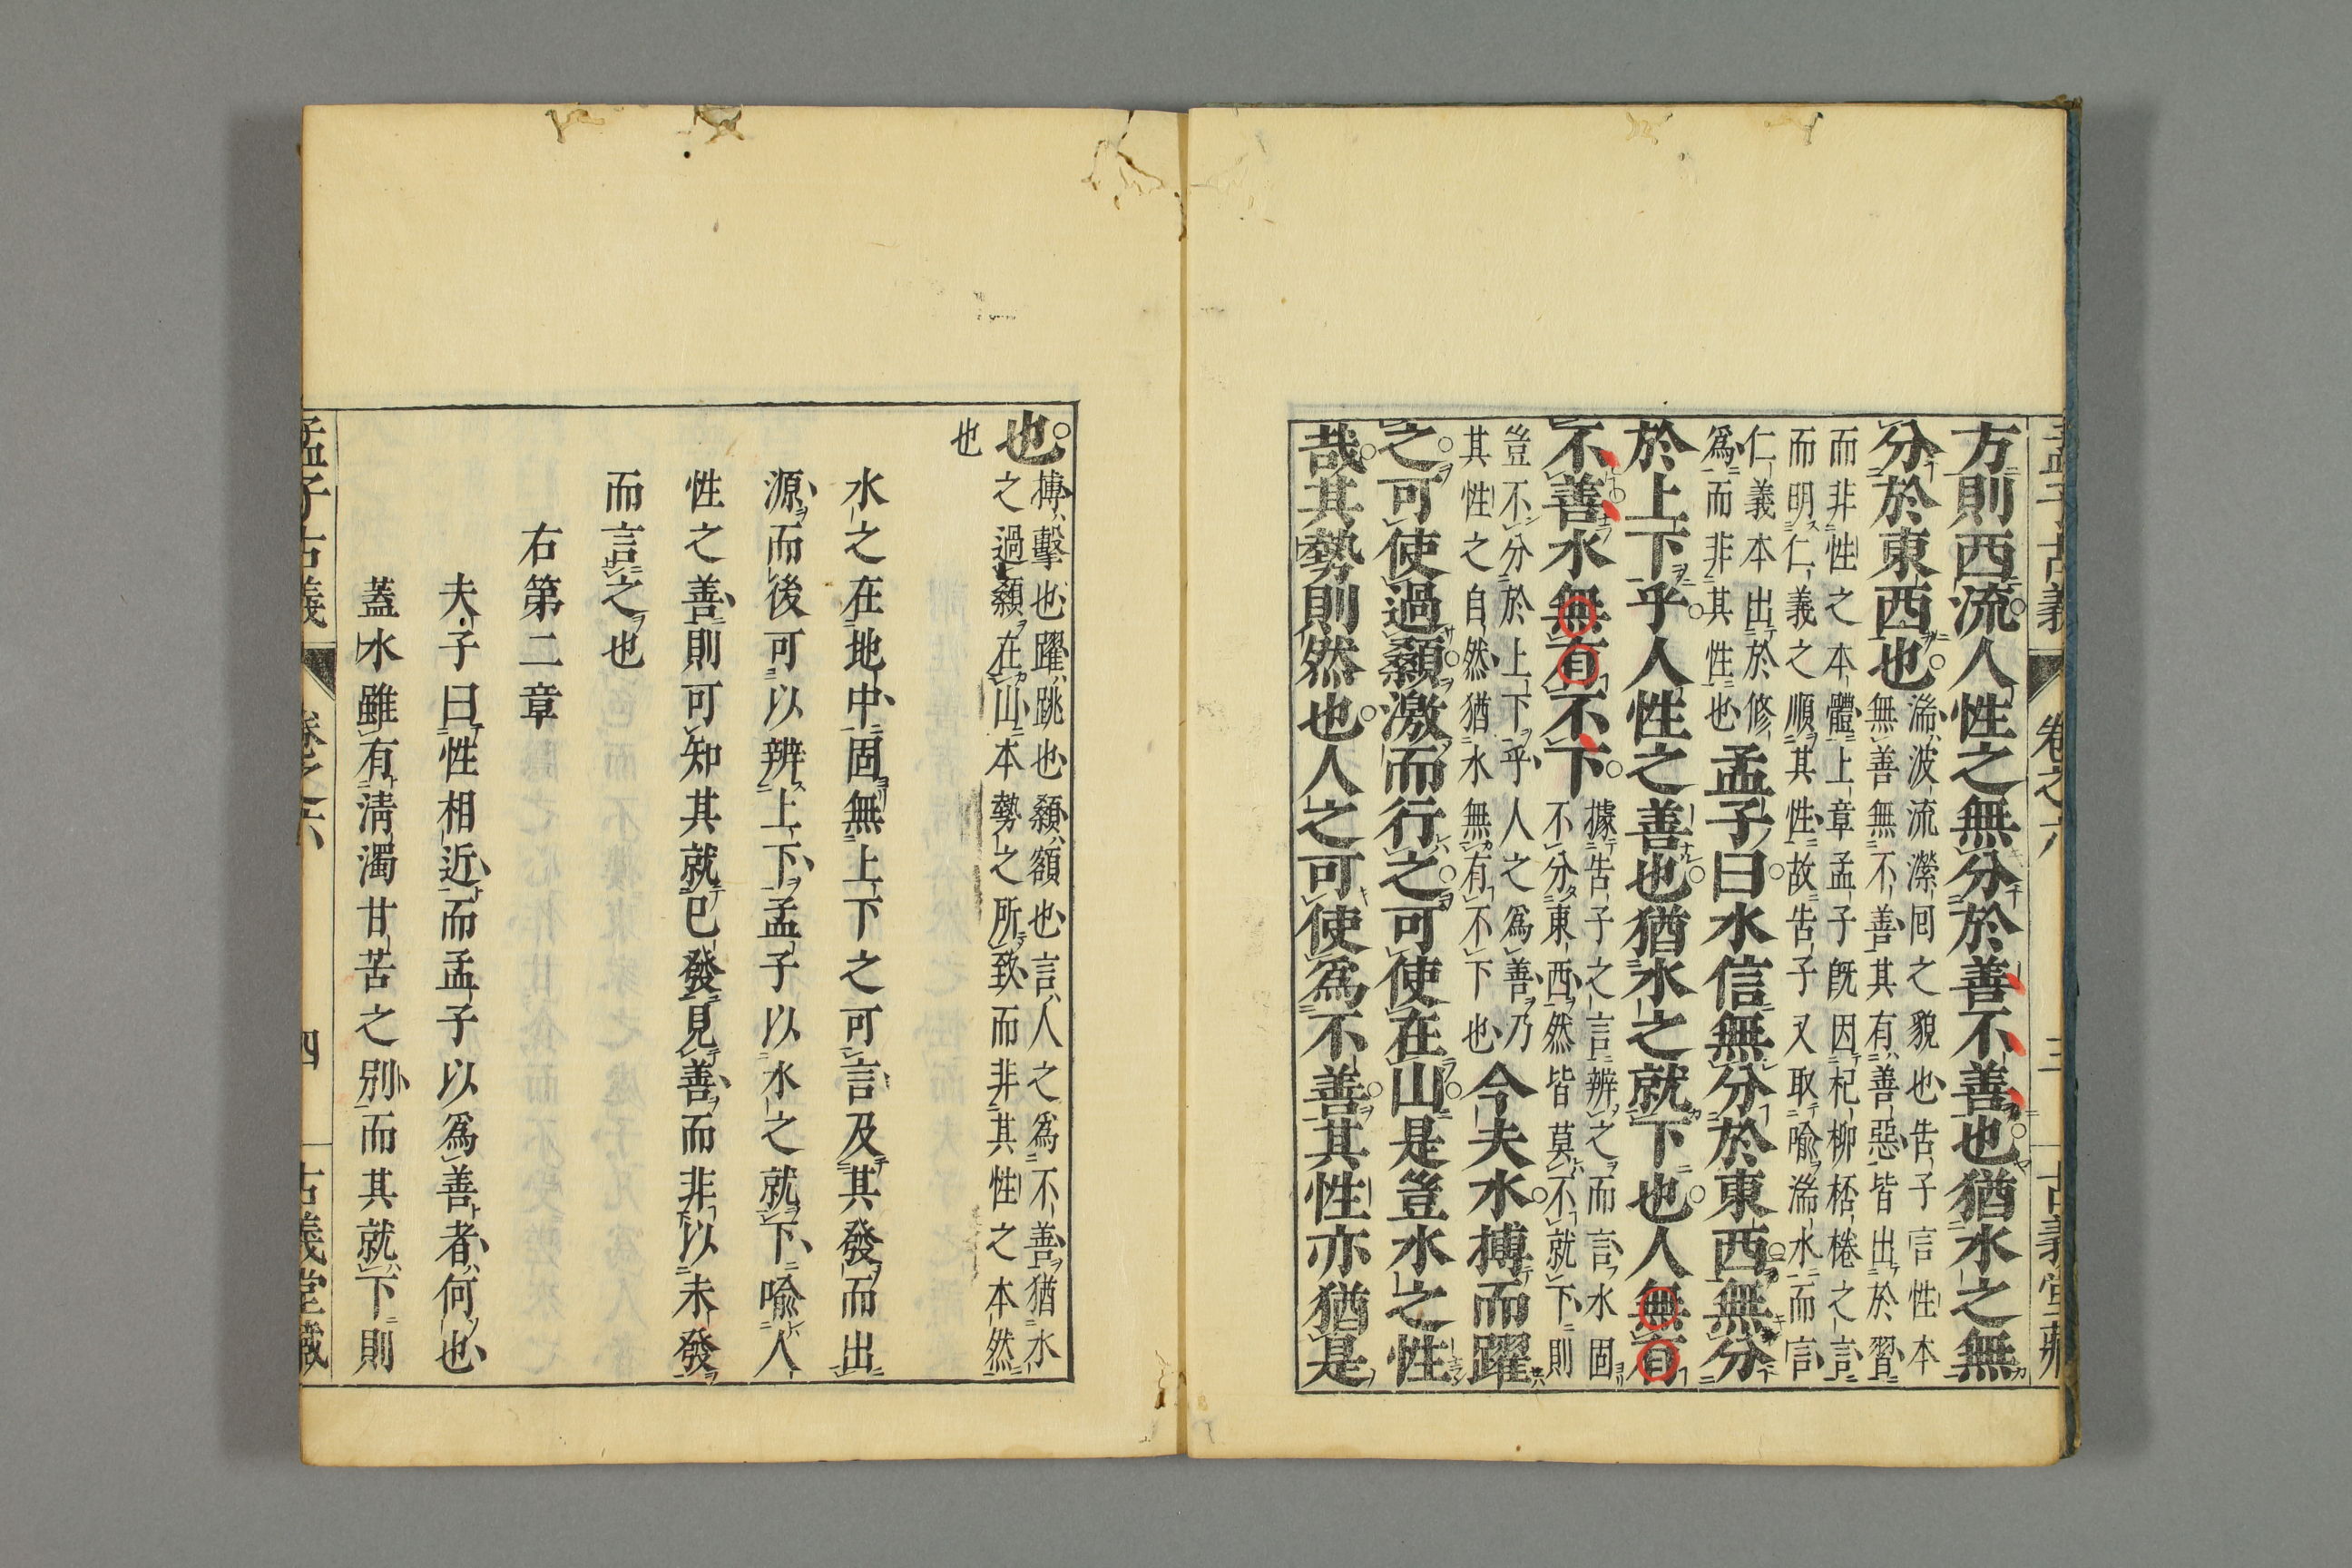 孟子古義 卷之六 三 古義堂藏
方則西流人性之無分於善不善也猶水之無
分於東西也
湍波流瀠囘之貌也告子言性本
無善無不善其有善惡皆出於習
而非性之本體上章孟子既因杞柳桮棬之言
而明仁義之順其性故告子又取喩湍水而言
仁義本出於修
爲而非其性也
孟子曰水信無分於東西無分
於上下乎人性之善也猶水之就下也人無有
不善水無有不下
據告子之言辨之而言水固
不分東西然皆莫不就下則
豈不分於上下乎人之爲善乃
其性之自然猶水無有不下也
今夫水搏而躍
之可使過顙激而行之可使在山是豈水之性
哉其勢則然也人之可使爲不善其性亦猶是
也
搏擊也躍跳也顙額也言人之爲不善猶水
之過顙在山本勢之所致而非其性之本然
也
水之在地中固無上下之可言及其發而出
源而後可以辨上下孟子以水之就下喩人
性之善則可知其就已發見善而非以未發
而言之也
右第二章
夫子曰性相近而孟子以爲善者何也
蓋水雖有淸濁甘苦之別而其就下則
孟子古義 卷之六 四 古義堂藏